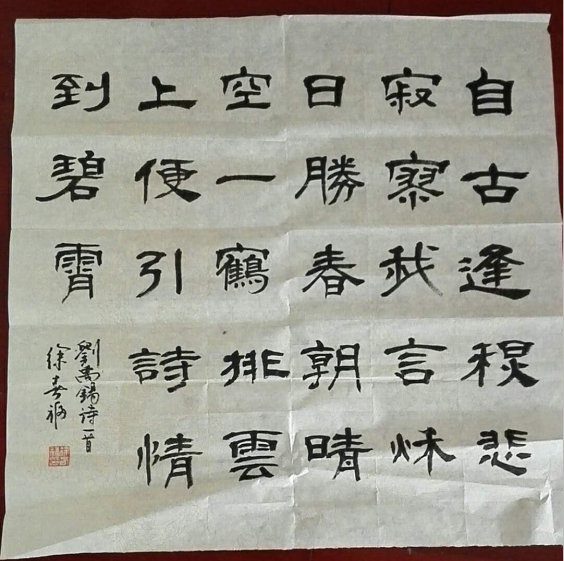 自古逢秋悲
寂寥我言秋
日勝春朝晴
空一鶴排雲
上便引詩情
到碧霄
劉禹錫诗一首
徐春